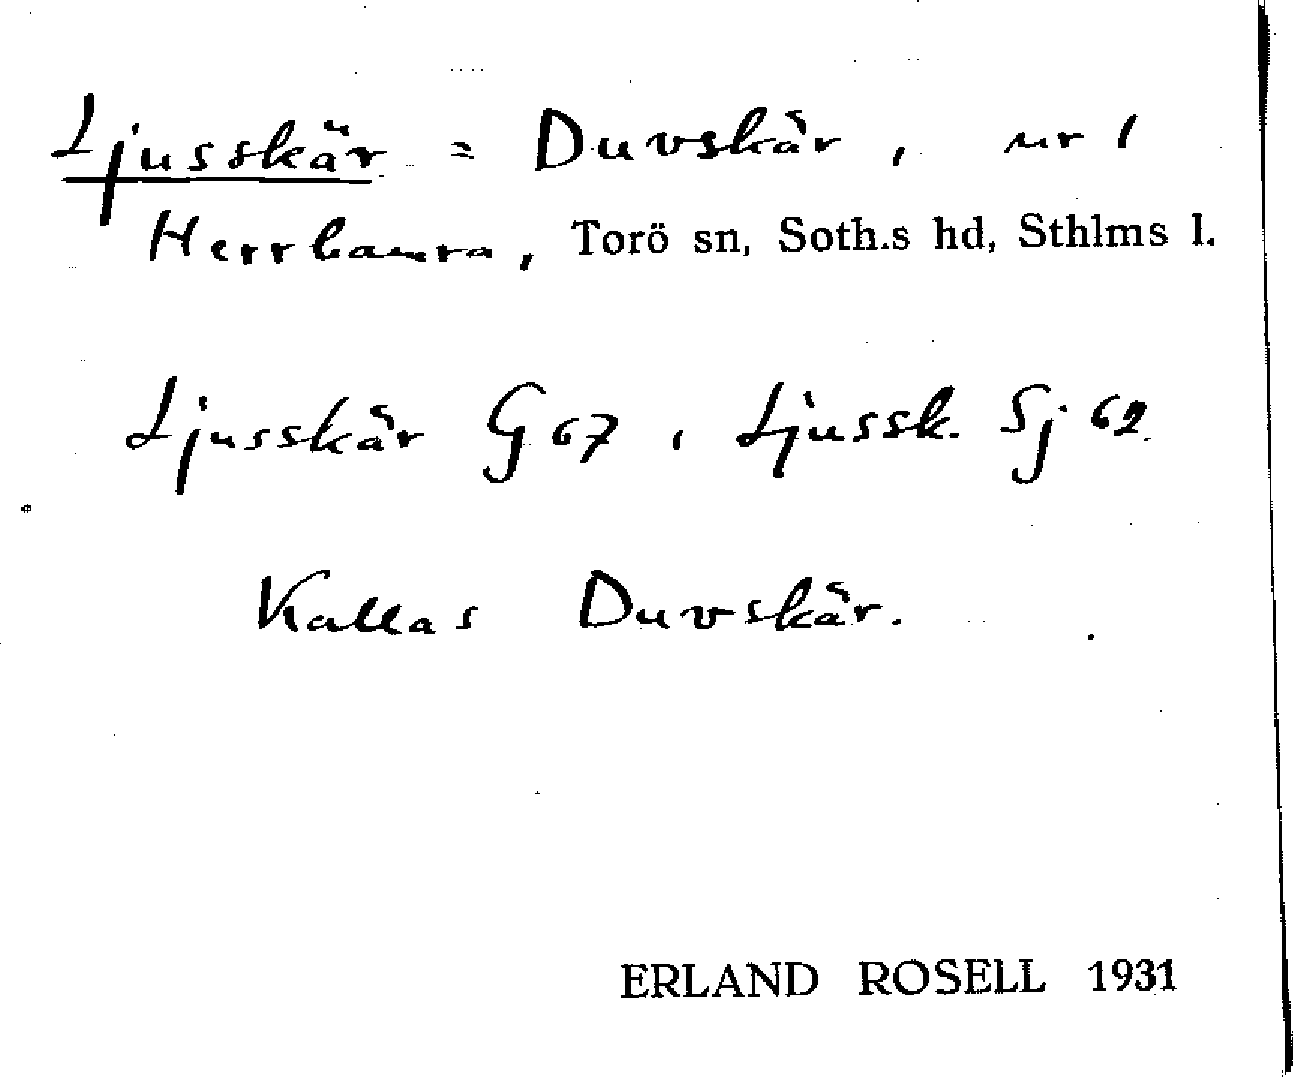 Ljusskär = Duvskär, nr 1
Herrhamra, Torö sn, Soth.s hd, Sthlms l.
Ljusskär G 67, Ljussk. Sj 62.
Kallas Duvskär.
ERLAND ROSELL 1931